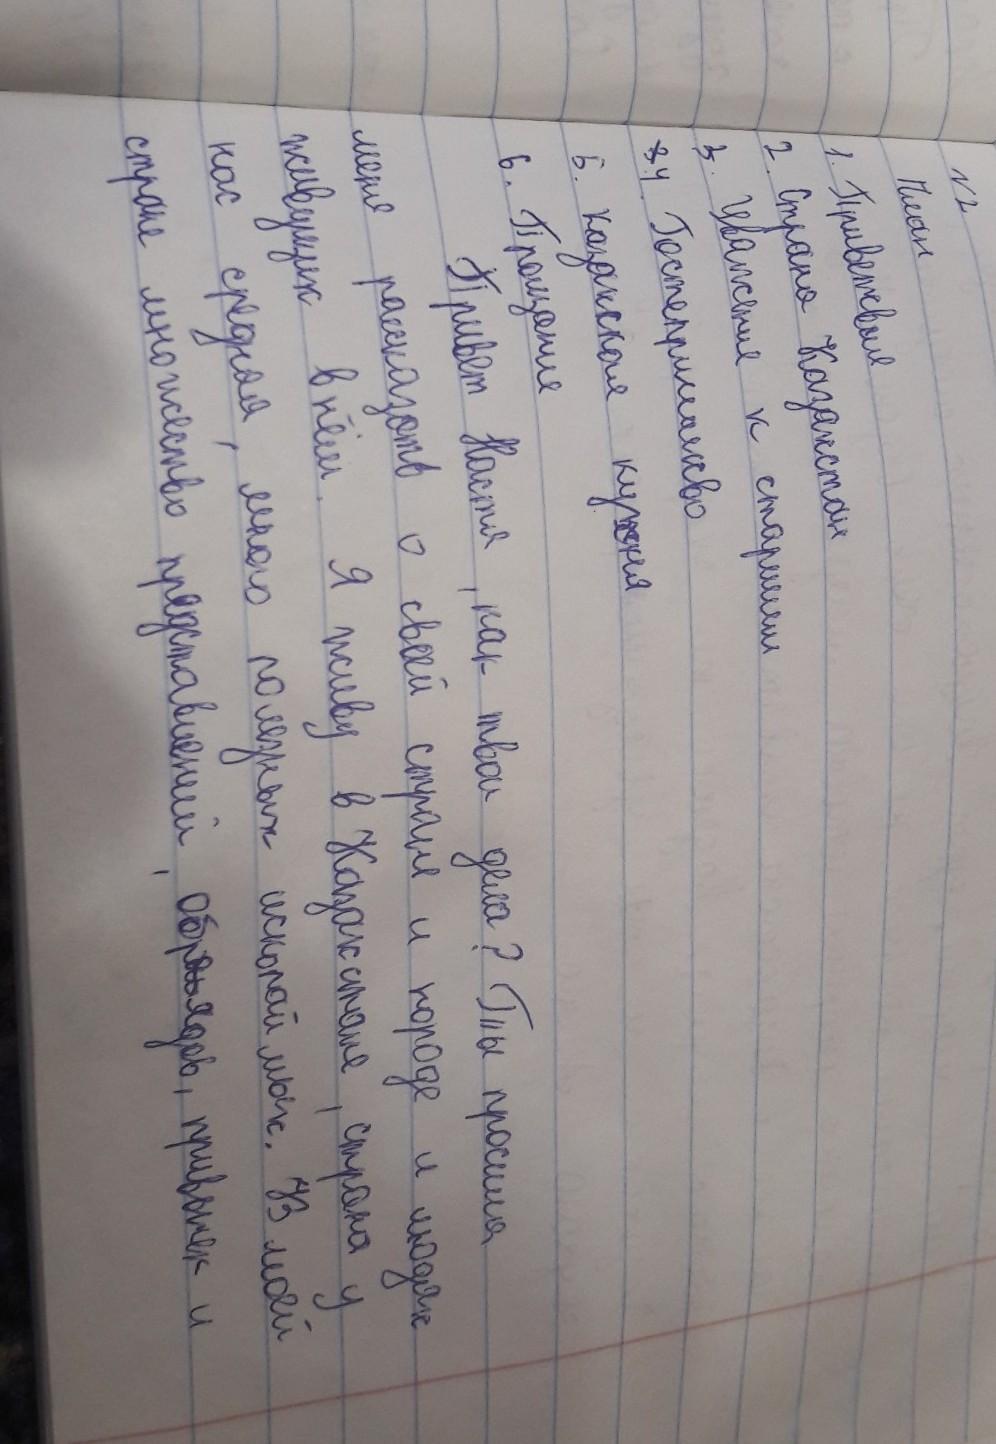 №2
План
1. Приветствие
2. Страна Казахстан
3. Уважение к старшим
4. Гостеприимство
5. Казахская кухня
6. Прощание
Привет Настя, как твои дела? Ты просила
меня рассказать о своей стране и городе и людях
живущих в нём. Я живу в Казахстане, страна у
нас средняя, много полезных ископаймых. В моей
стране множество представлений, обрядов, привычек и